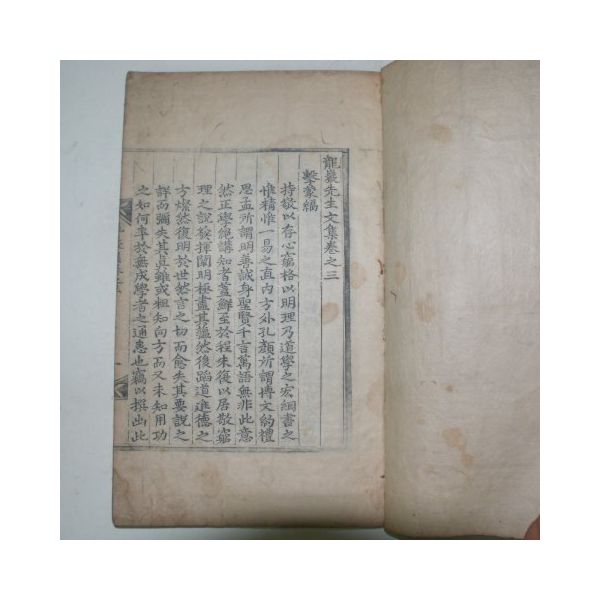 龍巖先生文集卷之三
擊蒙編
持敬以存心窮格以明理乃道學之宏綱書之
惟精惟一易之直內方外孔顏所謂博文約禮
思孟所謂明善誠身聖賢千言萬語無非此意
然正學絶講知者蓋鮮至於程朱復以居敬窮
理之說發揮闡明極盡其蘊然後蹈道進德之
方燦然復明於世然言之切而愈失其要說之
詳而彌失其眞雖或粗知向方而又未知用功
之如何卒於無成學者之通患也竊以撰出此